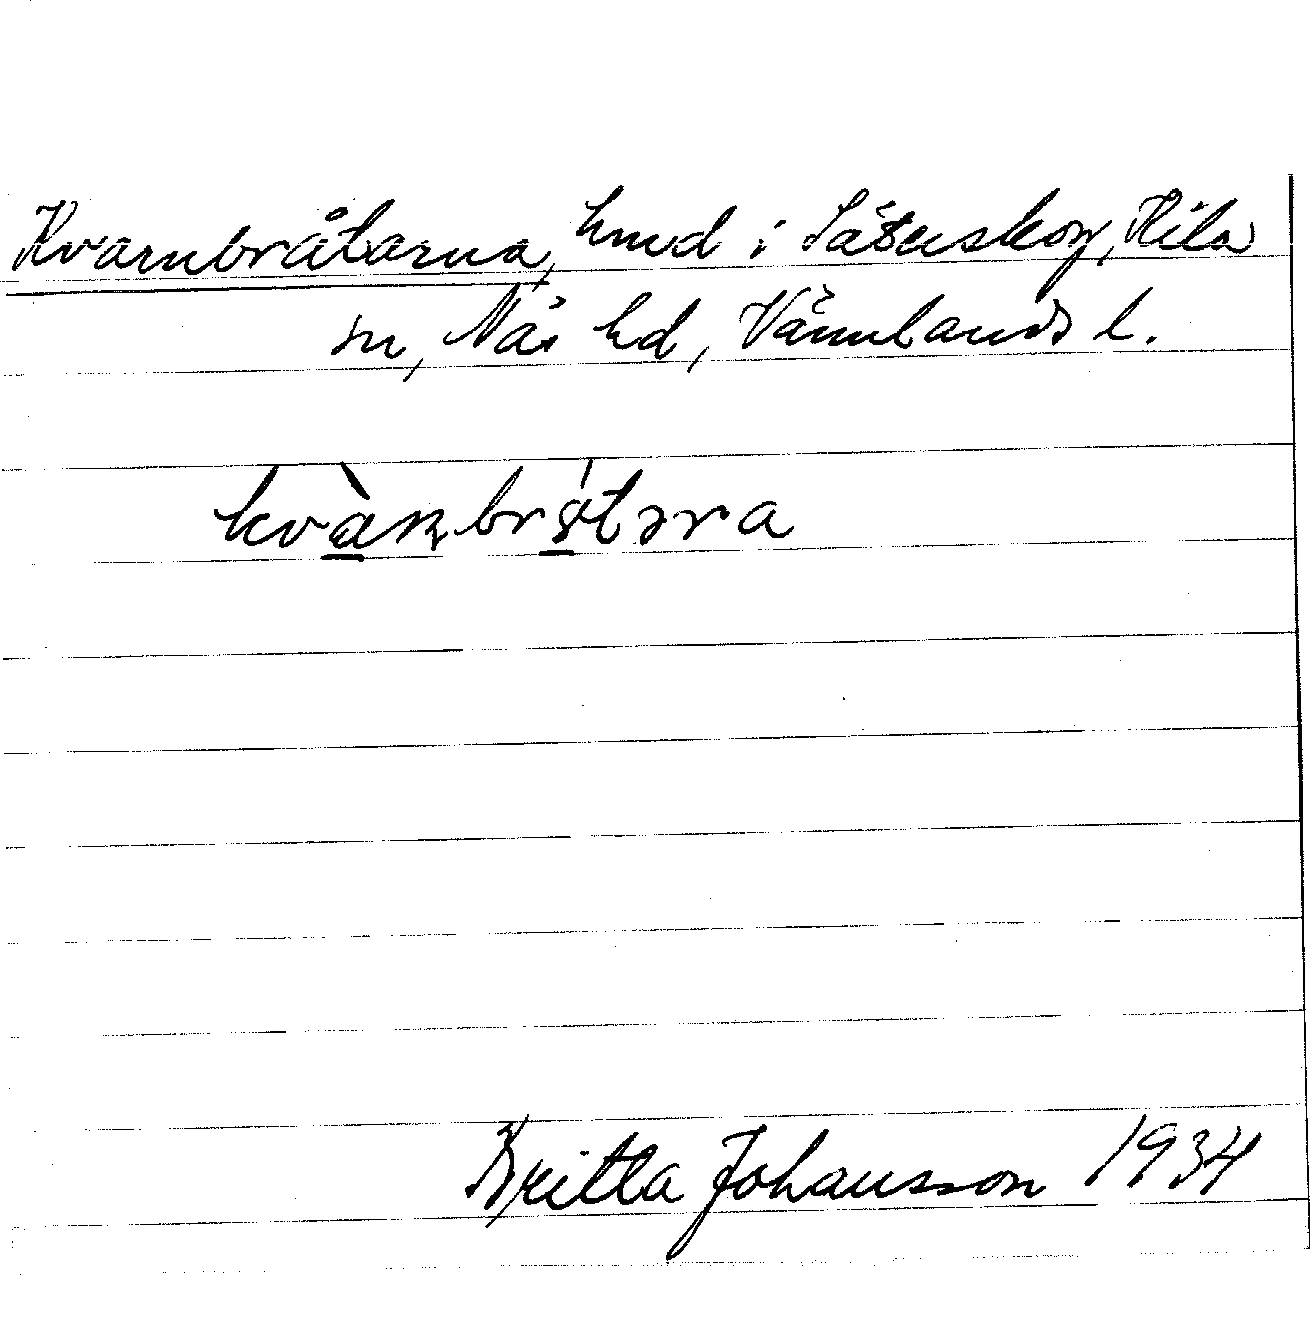 Kvarnbråtarna, hmd i Säterskog, Kila
sn, Näs hd, Värmlands l.
kvàn̥brǻtəra
Britta Johansson 1934